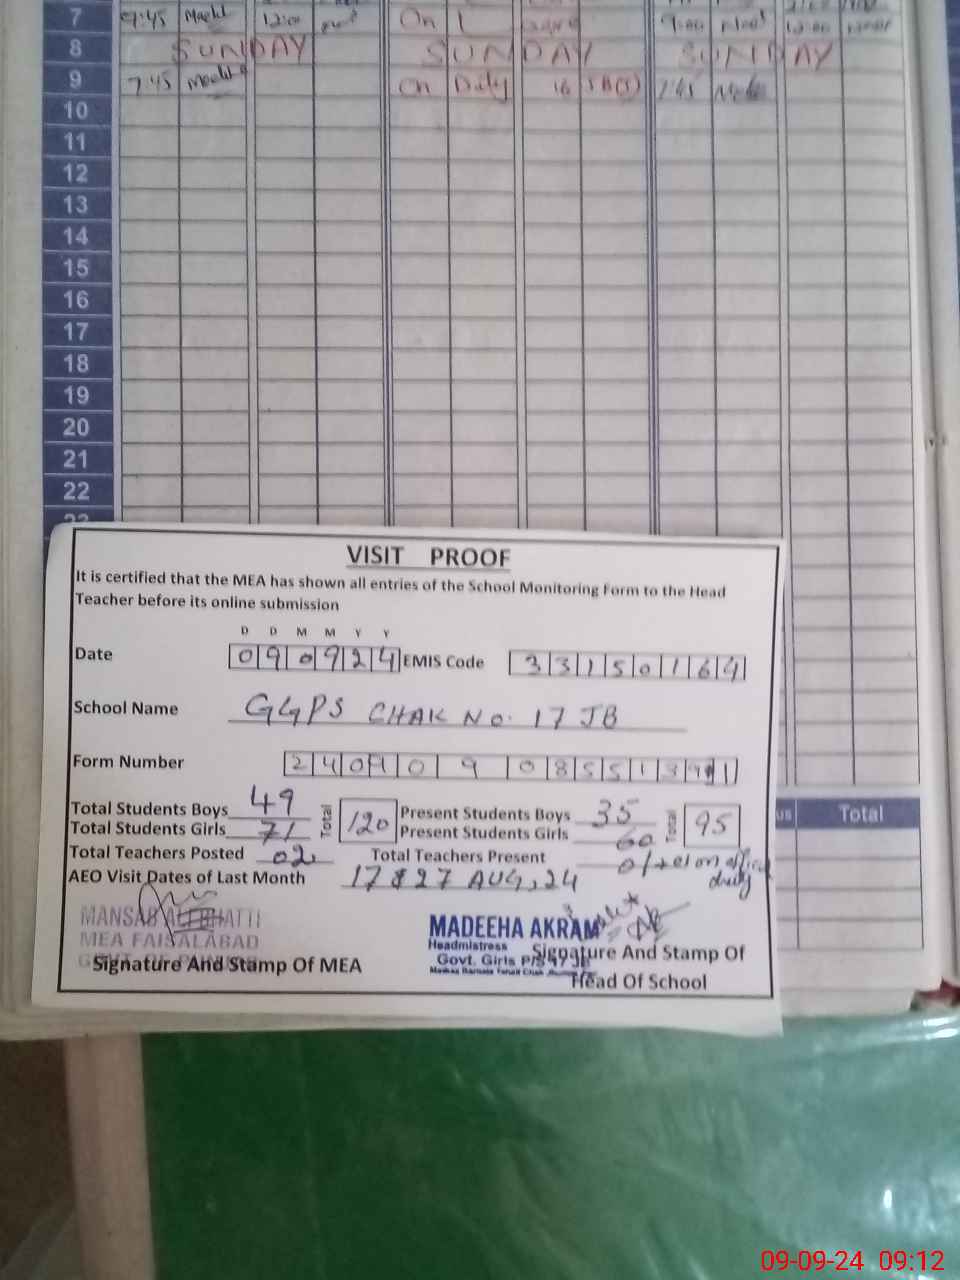 7 7:45 12:00 On 9:00 12:00
8 SUNDAY SUNDAY SUNDAY
9 7:45 On Duty 16 JB(S) 7:45
10
11
12
13
14
15
16
17
18
19
20
21
22
23
VISIT PROOF
It is certified that the MEA has shown all entries of the School Monitoring Form to the Head
Teacher before its online submission
D D M M Y Y
Date 090924 EMIS Code 33150164
School Name GGPS CHAK NO. 17 JB
Form Number
Total Students Boys 49 Total 120 Present Students Boys 35 Total 95
Total Students Girls 71 Present Students Girls 60
Total Teachers Posted 02 Total Teachers Present 01+01 on official
duty
AEO Visit Dates of Last Month 17 & 27 AUG, 24
MANSAB ALI BHATTI
MEA FAISALABAD
Signature And Stamp Of MEA
MADEEHA AKRAM
Headmistress
Govt. Girls P/S 17 JB
Signature And Stamp Of
Head Of School
us Total
09-09-24 09:12